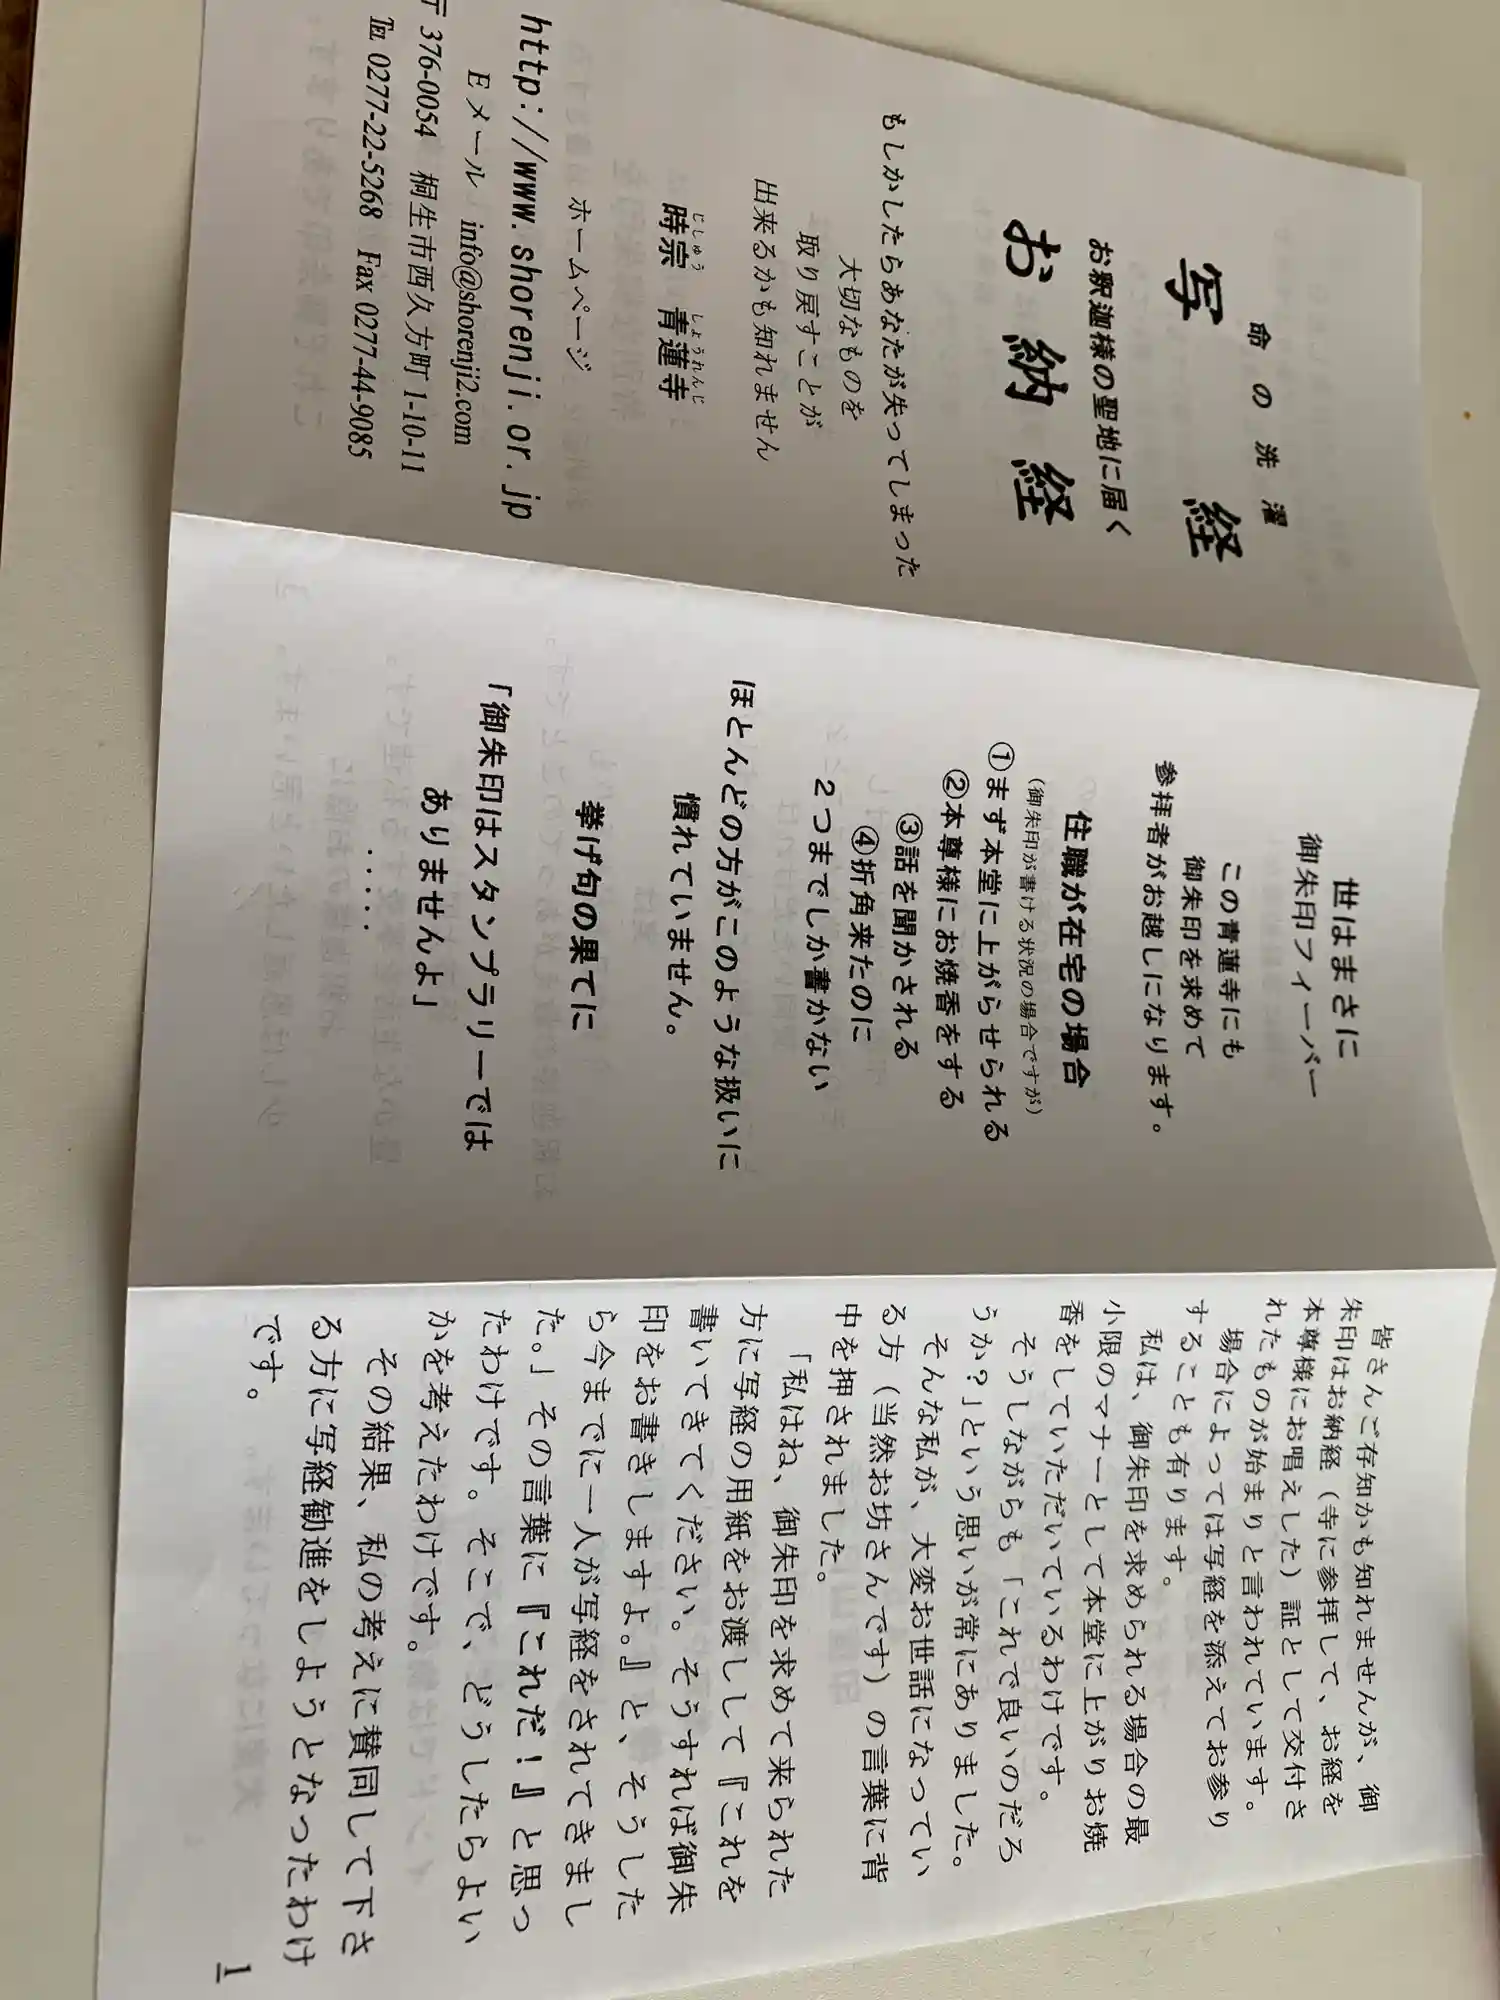 命の洗濯
写経
お釈迦様の聖地に届く
お納経
もしかしたらあなたが失ってしまった
大切なものを
取り戻すことが
出来るかも知れません
じしゅう しょうれんじ
時宗 青蓮寺
ホームページ
http://www.shorenji.or.jp
Eメール info@shorenji2.com
〒376-0054 桐生市西久方町1-10-11
℡ 0277-22-5268 Fax 0277-44-9085
世はまさに
御朱印フィーバー
この青蓮寺にも
御朱印を求めて
参拝者がお越しになります。
住職が在宅の場合
(御朱印が書ける状況の場合ですが)
①まず本堂に上がらせられる
②本尊様にお焼香をする
③話を聞かされる
④折角来たのに
2つまでしか書かない
ほとんどの方がこのような扱いに
慣れていません。
挙げ句の果てに
「御朱印はスタンプラリーでは
ありませんよ」
・・・・・
皆さんご存知かも知れませんが、御
朱印はお納経（寺に参拝して、お経を
本尊様にお唱えした）証として交付さ
れたものが始まりと言われています。
場合によっては写経を添えてお参り
することも有ります。
私は、御朱印を求められる場合の最
小限のマナーとして本堂に上がりお焼
香をしていただいているわけです。
そうしながらも「これで良いのだろ
うか？」という思いが常にありました。
そんな私が、大変お世話になってい
る方（当然お坊さんです）の言葉に背
中を押されました。
「私はね、御朱印を求めて来られた
方に写経の用紙をお渡しして『これを
書いてきてください。そうすれば御朱
印をお書きしますよ。』と、そうした
ら今までに一人が写経をされてきまし
た。」その言葉に『これだ！』と思っ
たわけです。そこで、どうしたらよい
かを考えたわけです。
その結果、私の考えに賛同して下さ
る方に写経勧進をしようとなったわけ
です。
1